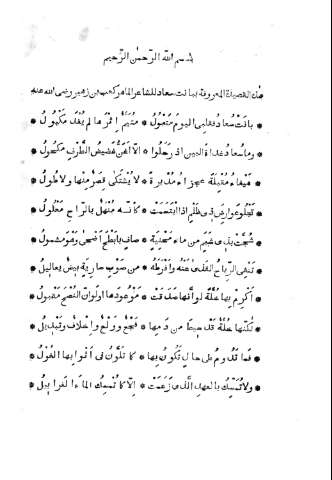 بسم الله الرحمن الرحيم
هذه القصيدة المعروفة ببانت سعاد للشاعر الماهر كعب بن زهير رضى الله عنه
* بانَت سُعاد فقلبى اليومَ مَتبُولُ * مُتيَّم إثرَها لم يُفدَ مَكبُولُ *
* وما سُعادُ غداةَ البين اذ رحلُوا * الّا أغنُّ غضيضُ الطَّرفِ مكحُولُ
* هيفاءُ مُقبلةً عجزاءُ مُدبرةً * لا يُشتكَى قِصَرٌ مِنها ولا طُولُ
* تجلُو عوارضَ ذى ظَلمٍ اذا ابتسمَت * كأنّه مُنهَلٌ بالرّاحِ معلُولُ *
* شُجَّت بذى شبَمٍ من ماءِ مَحنيةٍ * صافٍ بأبطحَ أضحَى وهو مشمُولُ
* تنفى الرِّياحُ القذَى عنه وأفرطَهُ * من صَوبِ ساريةٍ بيضٌ يعاليلُ *
* أكرِم بها خُلَّةً لو أنّها صدقَت * موعُودَها او لوَ انّ النُّصحَ مقبُولُ *
* لكنّها خُلّةٌ قد سِيطَ من دمِها * فجعٌ وولعٌ وإخلافٌ وتبديلُ *
* فما تدُومُ على حالٍ تكُونُ بِها * كما تلوَّنُ فى أثوابِها الغُولُ *
* ولا تُمسِّكُ بالعهدِ الّذى زعمَت * إلّا كما تُمسِكُ الماءَ الغرابيلُ *